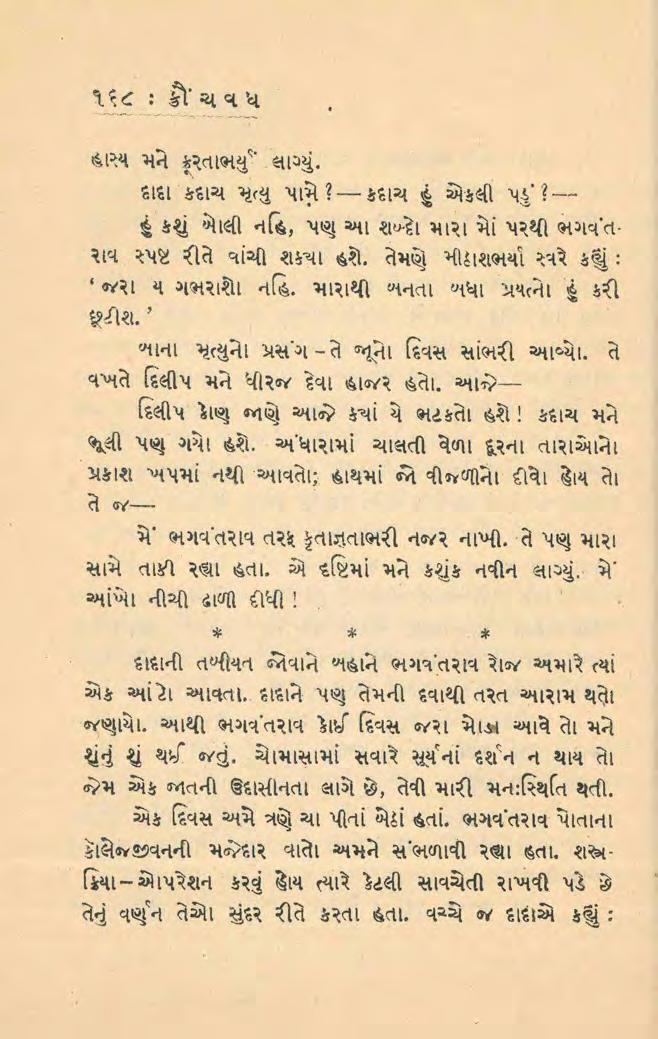 ૧૬૮ : ક્રૌંચવધ
હાસ્ય મને ક્રૂરતાભર્યું લાગ્યું.
દાદા કદાચ મૃત્યુ પામે ? — કદાચ હું એકલી પડું ? —
હું કશું બોલી નહિ, પણ આ શબ્દો મારા મોં પરથી ભગવંત-
રાવ સ્પષ્ટ રીતે વાંચી શક્યા હશે. તેમણે મીઠાશભર્યા સ્વરે કહ્યું :
‘ જરા ય ગભરાશો નહિ. મારાથી બનતા બધા પ્રયત્નો હું કરી
છૂટીશ. ’
બાના મૃત્યુનો પ્રસંગ – તે જૂનો દિવસ સાંભરી આવ્યો. તે
વખતે દિલીપ મને ધીરજ દેવા હાજર હતો. આજે—
દિલીપ કોણ જાણે આજે ક્યાં યે ભટકતો હશે ! કદાચ મને
ભૂલી પણ ગયો હશે. અંધારામાં ચાલતી વેળા દૂરના તારાઓનો
પ્રકાશ ખપમાં નથી આવતો; હાથમાં જો વીજળીનો દીવો હોય તો
તે જ—
મેં ભગવંતરાવ તરફ કૃતાજ્ઞતાભરી નજર નાખી. તે પણ મારા
સામે તાકી રહ્યા હતા. એ દૃષ્ટિમાં મને કશુંક નવીન લાગ્યું. મેં
આંખો નીચી ઢાળી દીધી !
* * *
દાદાની તબીયત જોવાને બહાને ભગવંતરાવ રોજ અમારે ત્યાં
એક આંટો આવતા. દાદાને પણ તેમની દવાથી તરત આરામ થતો
જણાયો. આથી ભગવંતરાવ કોઈ દિવસ જરા મોડા આવે તો મને
શુંનું શું થઈ જતું. ચોમાસામાં સવારે સૂર્યનાં દર્શન ન થાય તો
જેમ એક જાતની ઉદાસીનતા લાગે છે, તેવી મારી મનઃસ્થિતિ થતી.
એક દિવસ અમે ત્રણે ચા પીતાં બેઠાં હતાં. ભગવંતરાવ પોતાના
કૉલેજજીવનની મજેદાર વાતો અમને સંભળાવી રહ્યા હતા. શસ્ત્ર-
ક્રિયા – ઓપરેશન કરવું હોય ત્યારે કેટલી સાવચેતી રાખવી પડે છે
તેનું વર્ણન તેઓ સુંદર રીતે કરતા હતા. વચ્ચે જ દાદાએ કહ્યું :